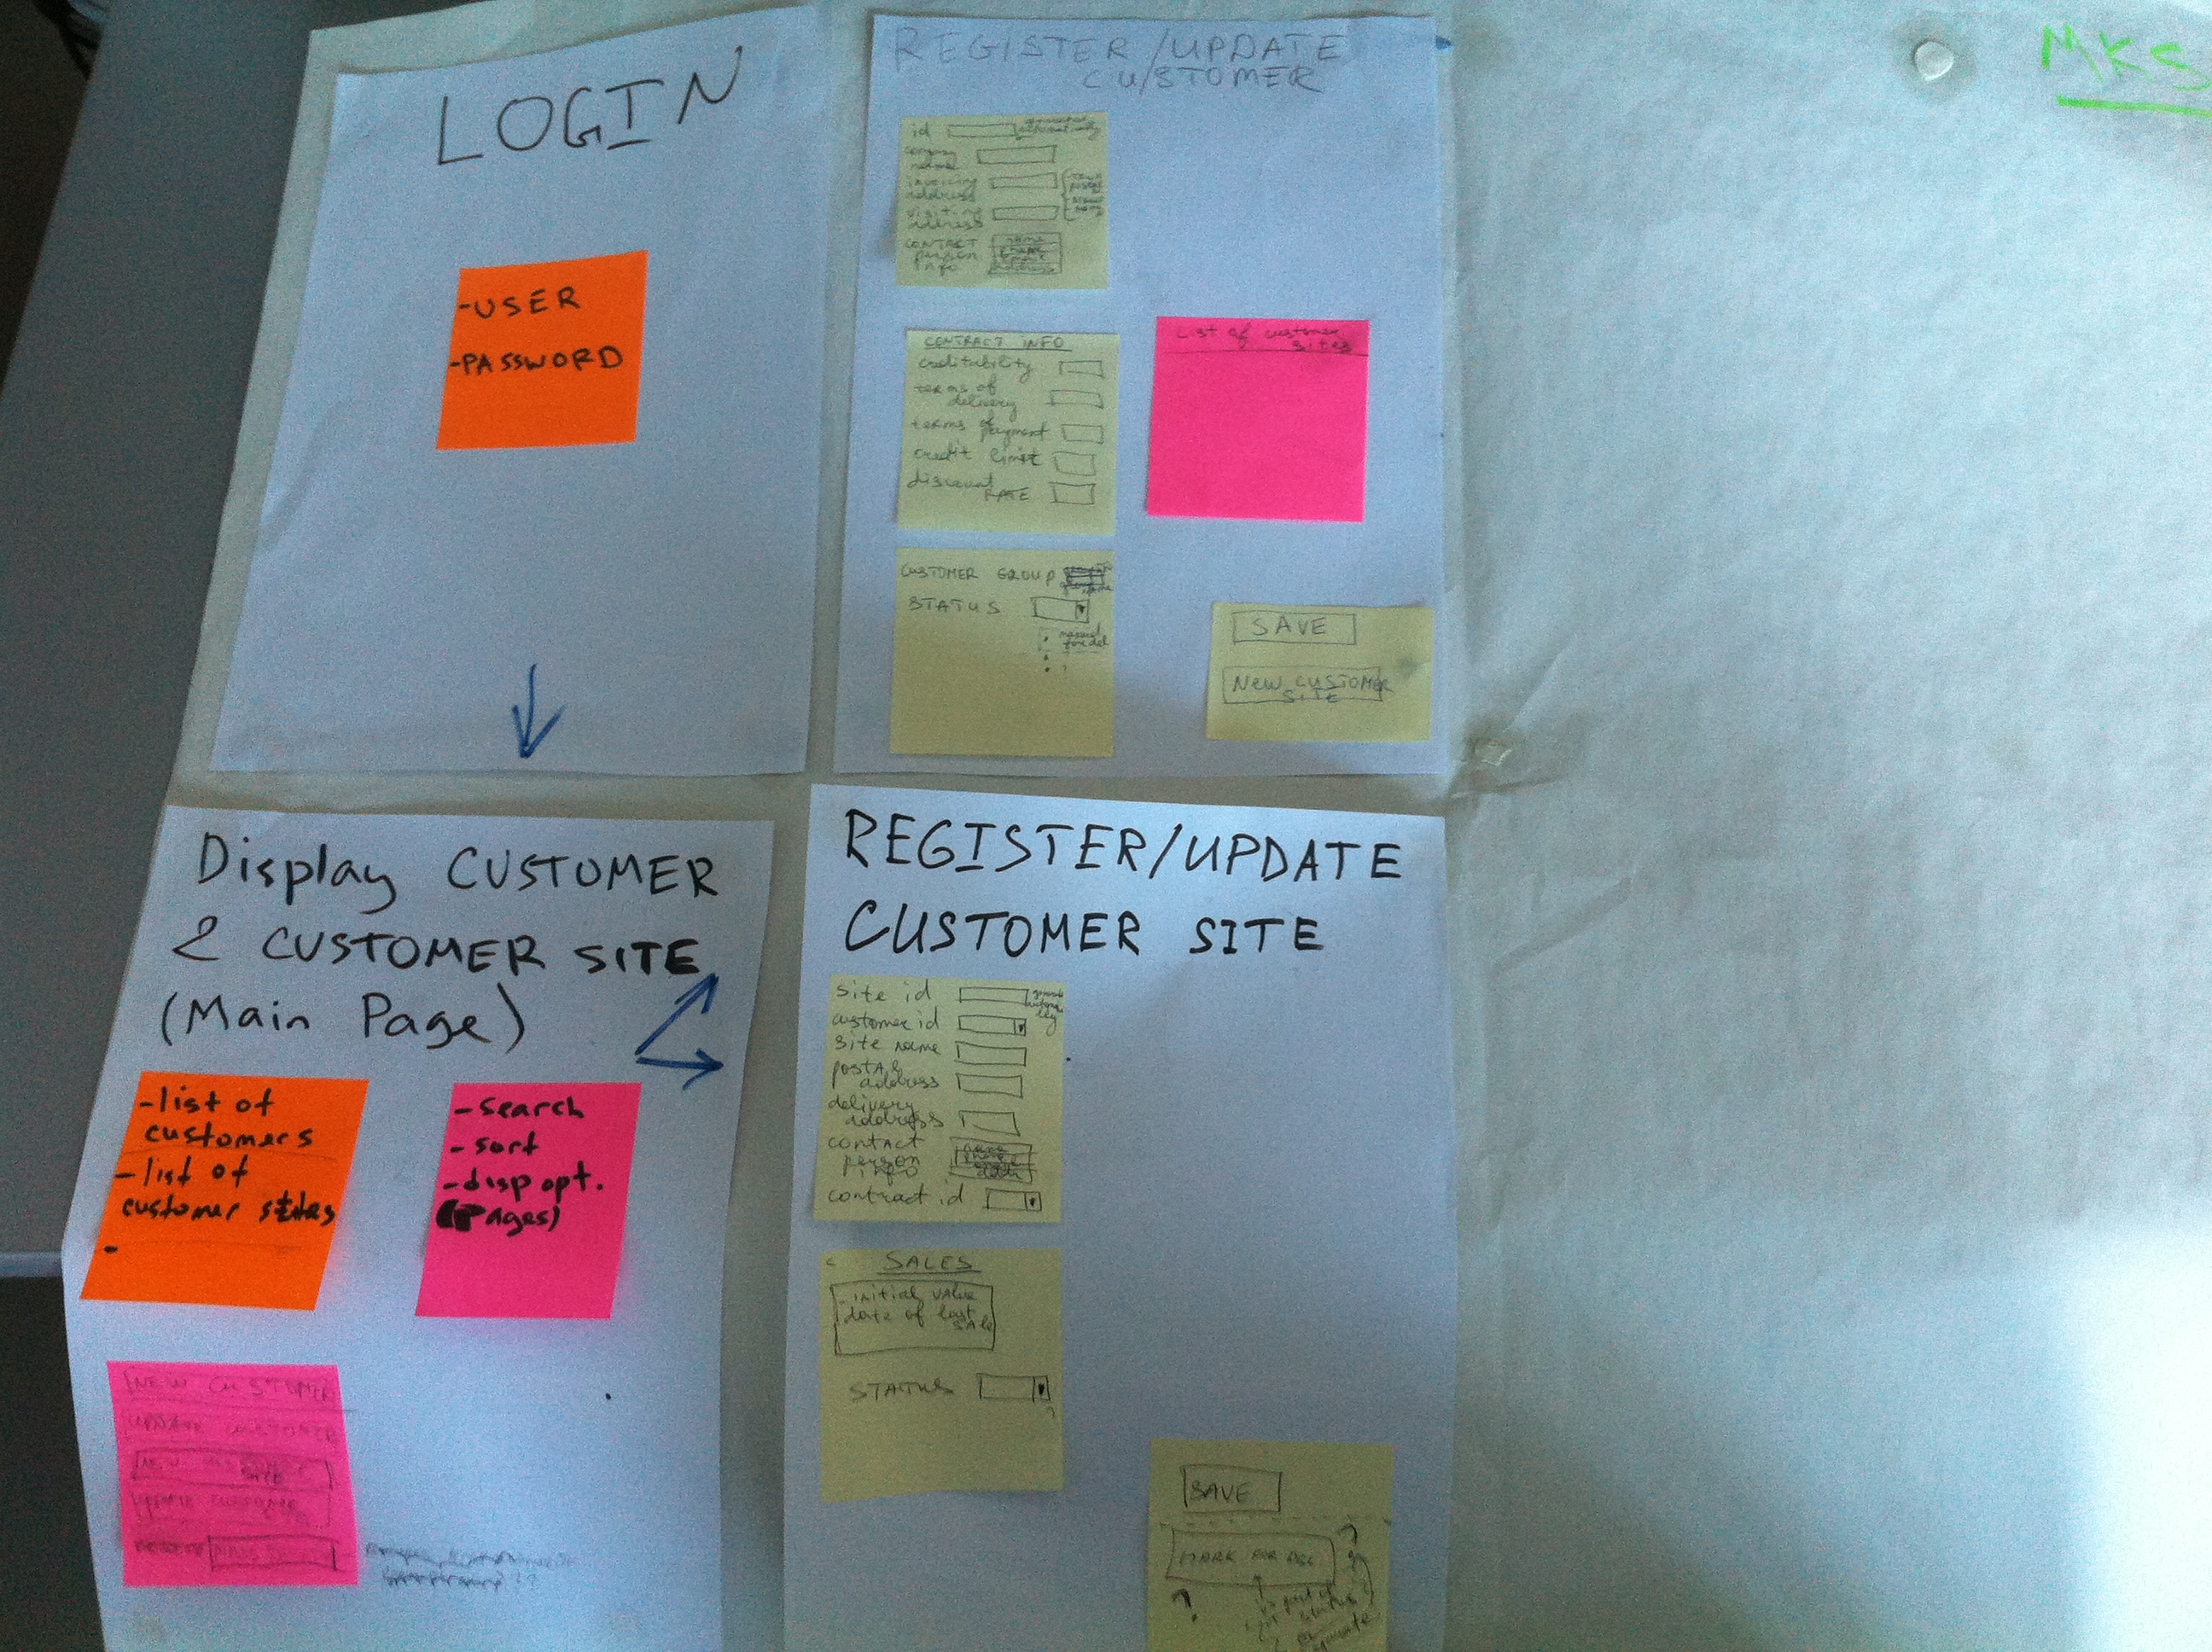 LOGIN
-USER
-PASSWORD
REGISTER/UPDATE
CUSTOMER
id
automatically
name
invoicing
address
address
CONTACT
person
info
name
phone
address
CONTRACT INFO
creditability
terms of
delivery
terms of
payment
credit limit
discount
RATE
List of customer
sites
CUSTOMER GROUP
STATUS
SAVE
NEW CUSTOMER
SITE
MKS
Display CUSTOMER
& CUSTOMER SITE
(Main Page)
-list of
customers
-list of
customer sites
-search
-sort
-disp opt.
(Pages)
NEW CUSTOMER
UPDATE CUSTOMER
NEW CUSTOMER
SITE
UPDATE CUSTOMER
REGISTER/UPDATE
CUSTOMER SITE
site id
customer id
site name
postal
address
delivery
address
contact
person
info
contract id
SALES
initial value
date of last
sale
STATUS
?
SAVE
MARK FOR DEL
?
part of
status